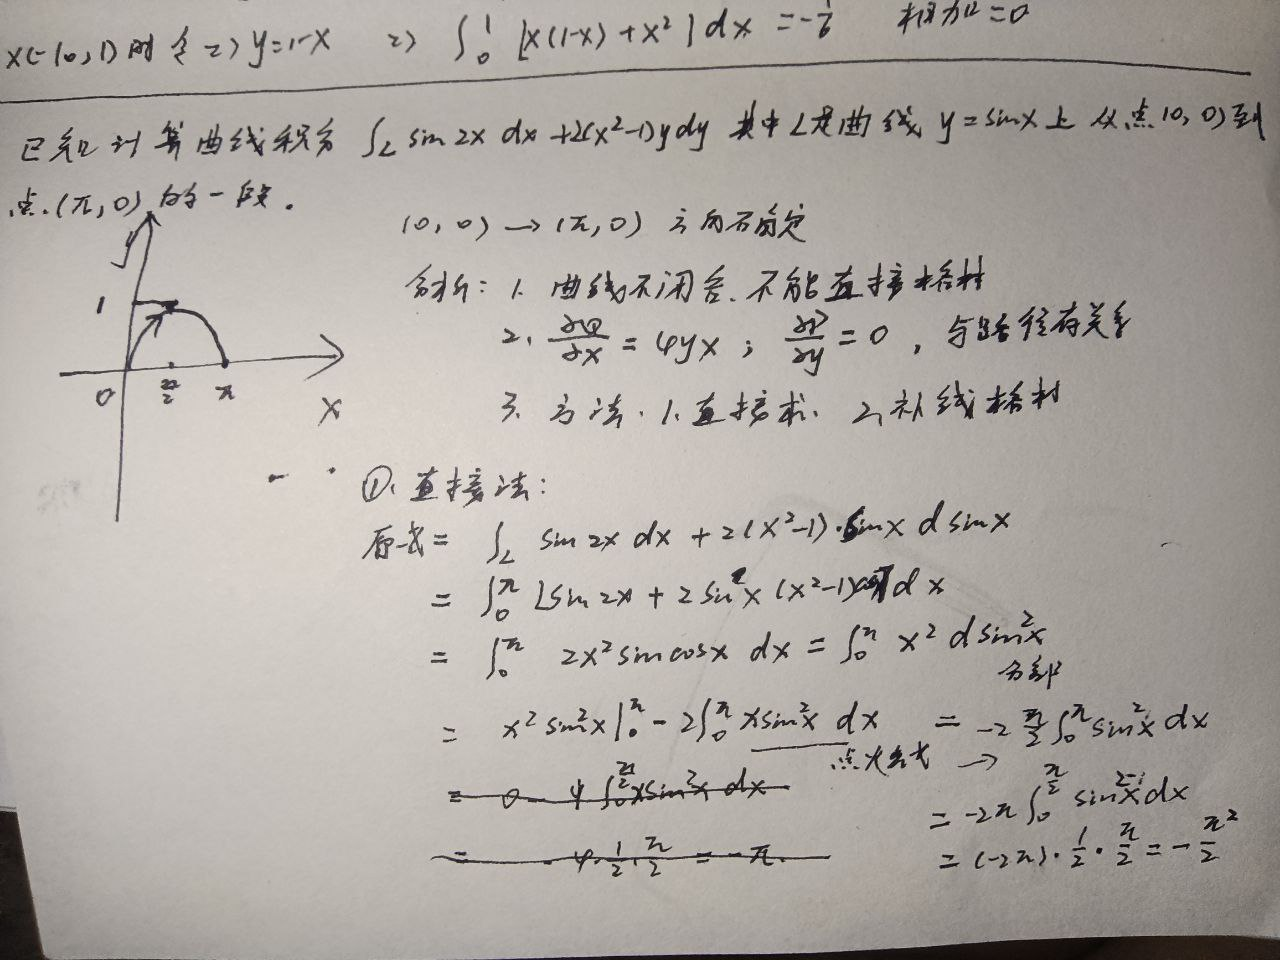 x(-10,1)时令 => y=1-x => ∫₀¹ [x(1-x)+x²]dx = -1/6 相加=0
已知计算曲线积分 ∫_L sin2x dx+2(x²-1)ydy 其中L是曲线 y=sinx上 从点(0,0)到
点(π,0)的一段.
y
1
0 π/2 π
x
(0,0)→(π,0) 方向不确定
分析: 1. 曲线不闭合.不能直接格林
2. ∂Q/∂x = 4yx ; ∂P/∂y = 0 , 与路径有关系
3. 方法. 1.直接求. 2.补线格林
①.直接法:
原式= ∫_L sin2x dx + 2(x²-1)·sinx dsinx
= ∫₀^π [sin2x + 2sinx(x²-1)cosx]dx
= ∫₀^π 2x²sincosx dx = ∫₀^π x² dsin²x
分部
= x²sin²x|₀^π - 2∫₀^π xsin²x dx = -2 π/2 ∫₀^π sin²x dx
点火公式 →
= 0 - 4∫₀^(π/2) xsin²x dx = -2π∫₀^(π/2) sin²x dx
= -4·1/2·π/2 = -π. = (-2π)·1/2·π/2 = -π²/2